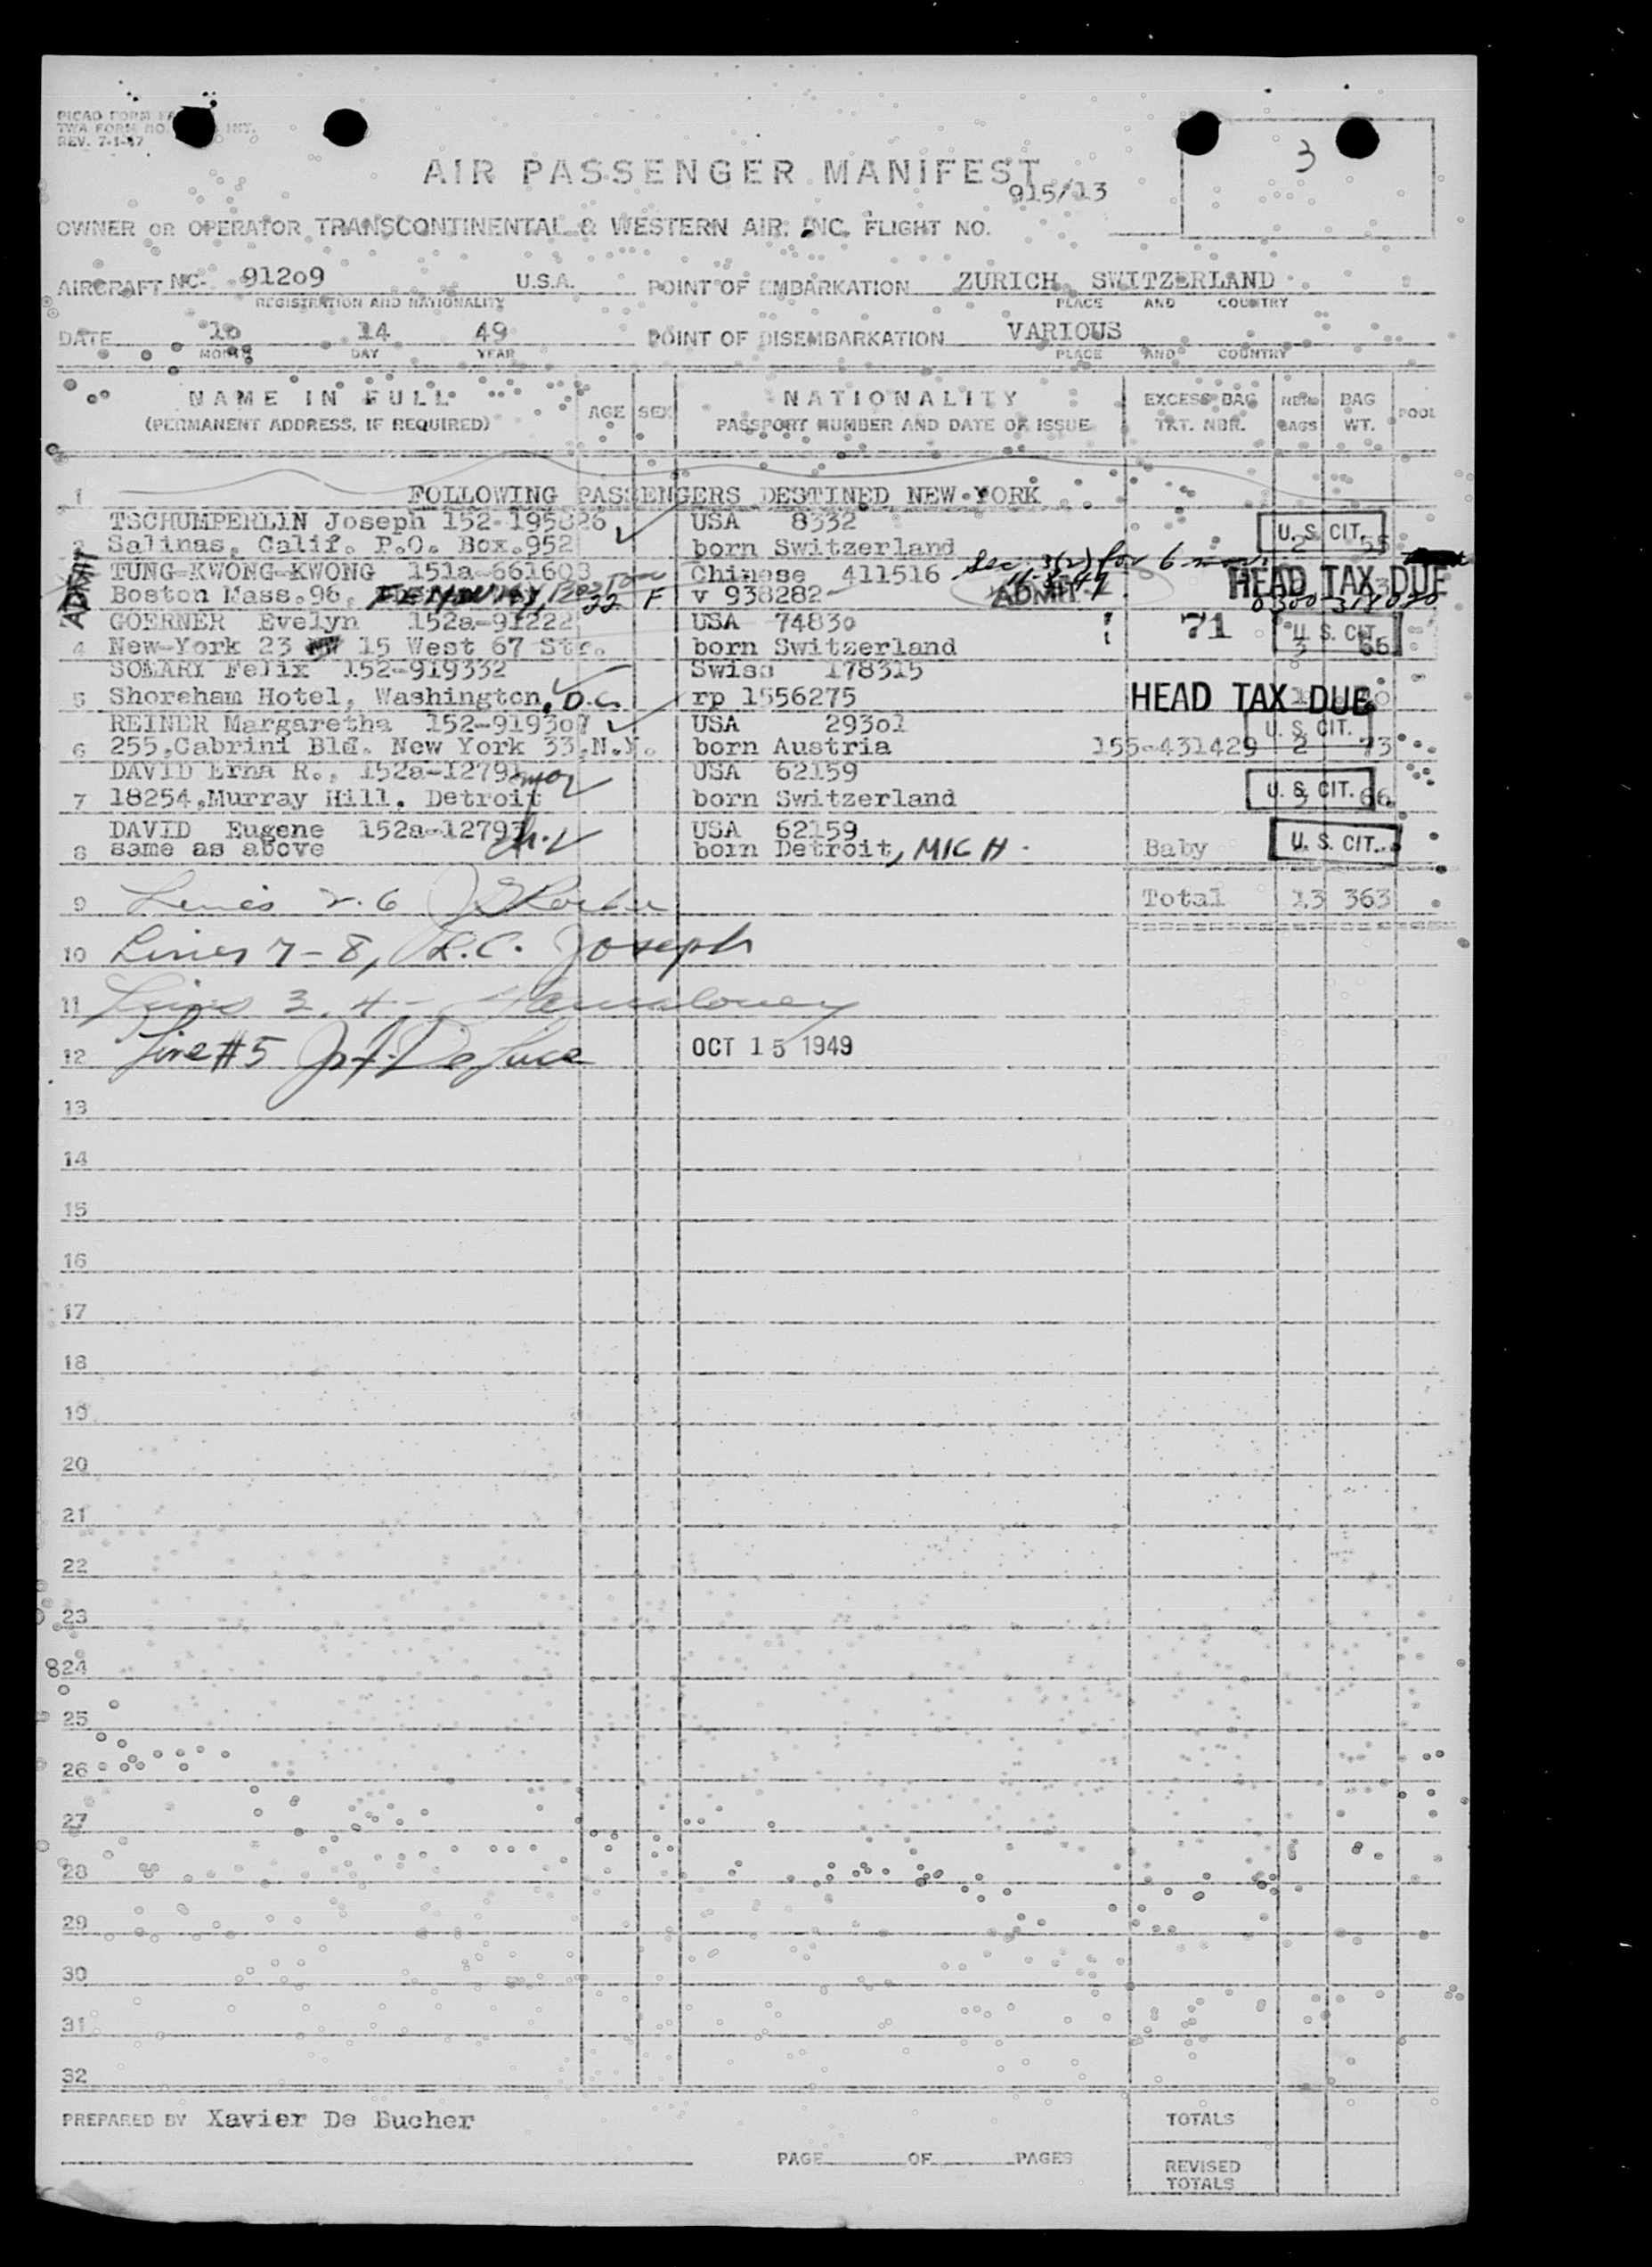 PICAO FORM
TWA FORM NO. INT.
REV. 7-1-47
3
AIR PASSENGER MANIFEST
915/13
OWNER OR OPERATOR TRANSCONTINENTAL & WESTERN AIR. INC. FLIGHT NO.
AIRCRAFT NC- 91209 U.S.A. POINT OF EMBARKATION ZURICH SWITZERLAND
REGISTRATION AND NATIONALITY PLACE AND COUNTRY
DATE 10 14 49 POINT OF DISEMBARKATION VARIOUS
MONTH DAY YEAR PLACE AND COUNTRY
NAME IN FULL AGE SEX NATIONALITY EXCESS BAG BAG POOL
(PERMANENT ADDRESS, IF REQUIRED) PASSPORT NUMBER AND DATE OF ISSUE TKT. NBR. BAGS WT.
1 FOLLOWING PASSENGERS DESTINED NEW-YORK
TSCHUMPERLIN Joseph 152-195826 USA 8332 U.S. CIT.
Salinas, Calif. P.O. Box.952 born Switzerland 2 55
ADMIT
TUNG-KWONG-KWONG 151a-661603 Chinese 411516 Sec. 3(2) for 6 HEAD TAX DUE
Boston Mass.96, 22 F v 938282 ADMIT 0300
GOERNER Evelyn 152a-91222 USA 74830 71 U.S. CIT.
4 New-York 23 15 West 67 Str. born Switzerland 3 66
SOMARY Felix 152-919332 Swiss 178315
5 Shoreham Hotel, Washington, D.C. rp 1556275 HEAD TAX DUE
REINER Margaretha 152-919307 USA 29301 U.S. CIT.
6 255,Cabrini Bld. New York 33.N.Y. born Austria 155-431429 2 73
DAVID Erna R., 152a-12791 USA 62159
7 18254,Murray Hill. Detroit born Switzerland U.S. CIT. 66
DAVID Eugene 152a-12793 USA 62159
8 same as above born Detroit, MICH. Baby U.S. CIT.
9 Lines 2.6 Total 13 363
10 Lines 7-8, R.C. Joseph
11 Lines 3.4-
12 Line #5 OCT 15 1949
13
14
15
16
17
18
19
20
21
22
23
24
25
26
27
28
29
30
31
32
PREPARED BY Xavier De Bucher TOTALS
PAGE OF PAGES
REVISED
TOTALS